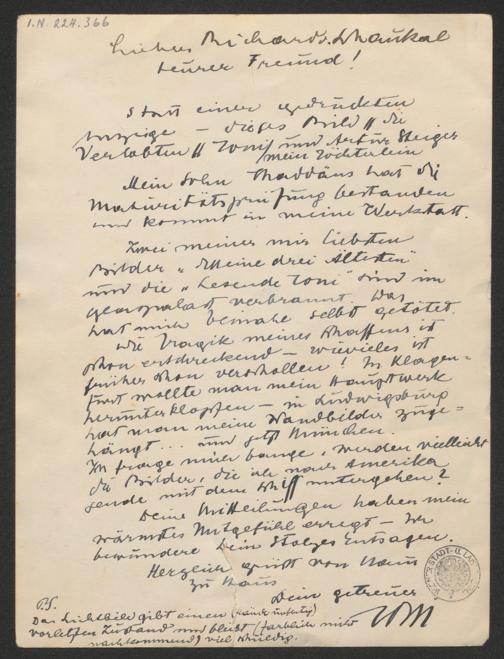 I.N. 224.366
Lieber Richard v. Schaukal
teurer Freund!
Statt einer gedruckten
Anzeige – dieses Bild „die
Verlobten" Toni und Artur Steiger
mein Töchterlein
Mein Sohn Thaddäus hat die
Maturitätsprüfung bestanden
und kommt in meine Werkstatt.
Zwei meiner mir liebsten
Bilder „Meine drei Ältesten"
und die „Lesende Toni" sind im
Glaspalast verbrannt. Das
hat mich beinahe selbst getötet.
Die Tragik meines Schaffens ist
schon erschreckend – wievieles ist
früher schon verschollen! In Klagen-
furt wollte man mein Hauptwerk
herunterklopfen – in Ludwigsburg
hat man meine Wandbilder zuge-
hängt... und jetzt München.
Ich frage mich bange, werden vielleicht
die Bilder, die ich nach Amerika
sende mit dem Schiff untergehen?
Deine Mitteilungen haben mein
wärmstes Mitgefühl erregt – Ich
bewundere Dein stolzes Entsagen.
Herzlich grüßt von Haus
zu Haus
Dein getreuer
P.S.
Das Lichtbild gibt einen
vorletzten Zustand und bleibt (farblich nicht
nachkommend) viel schuldig.